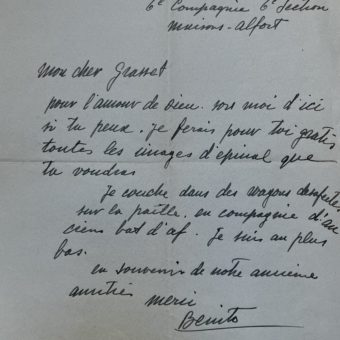 6e Compagnie 6e Section
Maisons-Alfort
mon cher Grasset
pour l'amour de Dieu. sors moi d'ici
si tu peux. je ferais pour toi gratis
toutes les images d'epinal que
tu voudras
Je couche dans des wagons desaffectés
sur la paille. en compagnie d'an
ciens bat d'af. Je suis au plus
bas.
en souvenir de notre ancienne
amitié merci
Benito